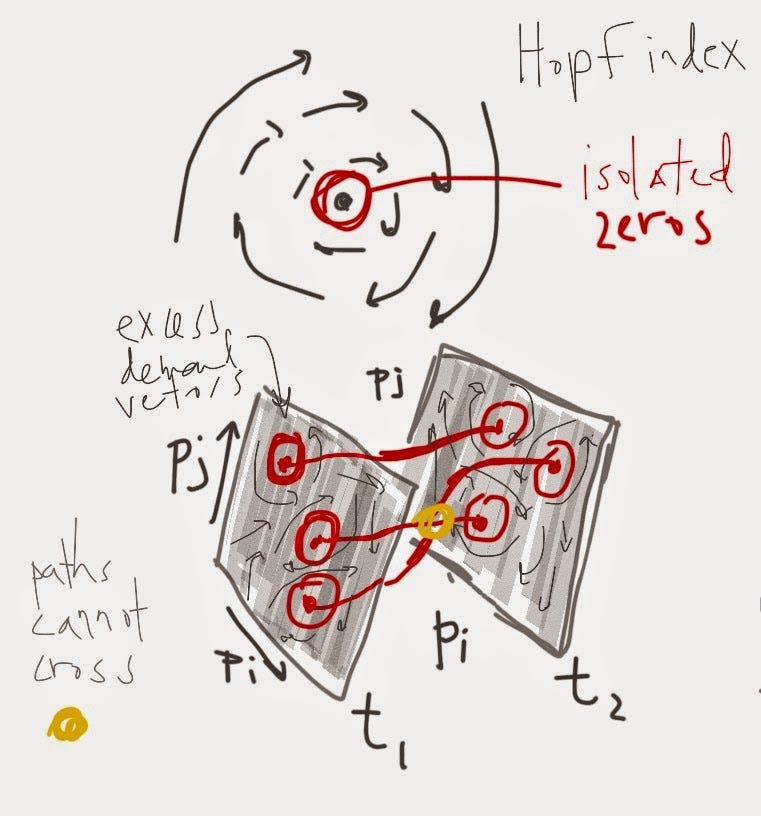 Hopf index
isolated
zeros
excess
demand
vectors
pj
pj
paths
cannot
cross
pi
pi
t1
t2